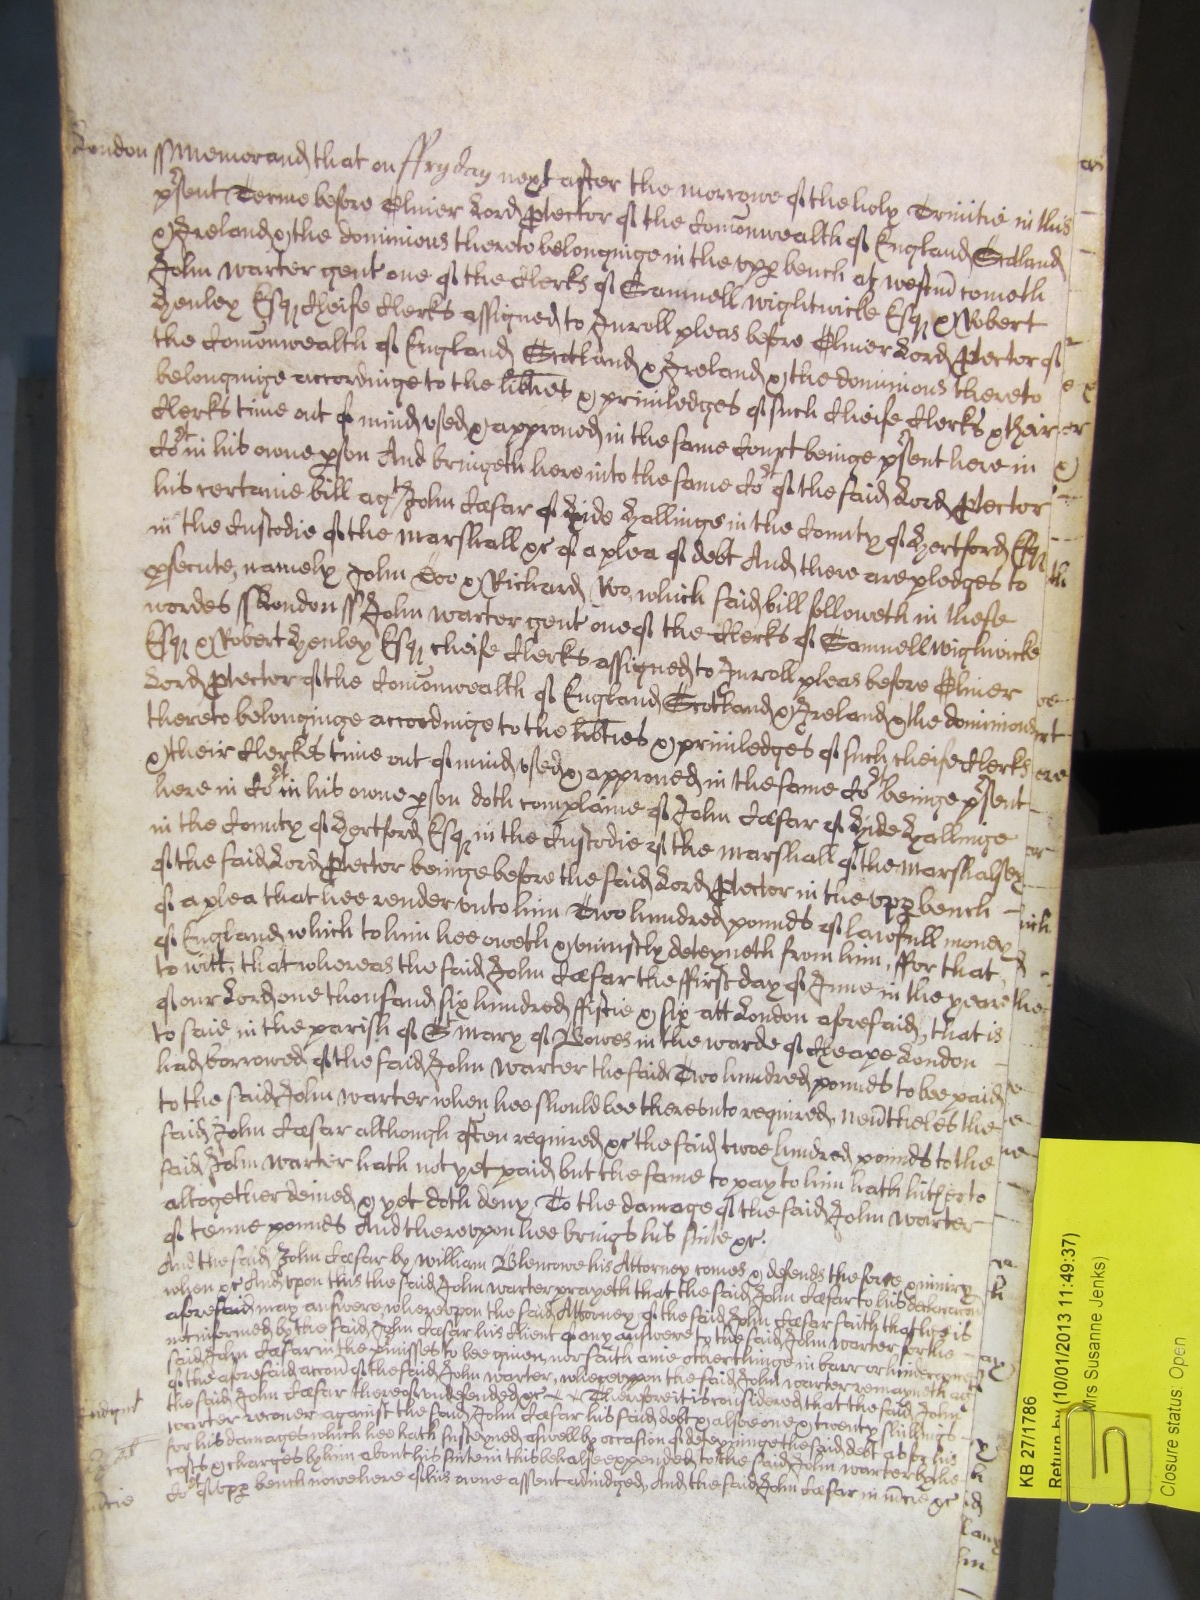 London ss Memorand that on ffryday next after the morrowe of the holy Trinitie in this
p'sent Terme before Oliver Lord Ptector of the Comonwealth of England Scotland
& Ireland & the dominions thereto belonginge in the upp bench at westm cometh
John Warter gent one of the Clerks of Samuell Wightwicke Esq & Robert
Henley Esq Cheife Clerks assigned to Inroll pleas before Oliver Lord Ptector of
the Comonwealth of England Scotland & Ireland & the dominions thereto
belonginge accordinge to the libties & priviledges of such Cheife Clerks & their
Clerks time out of mind used & approved in the same Court beinge p'sent here in
Cort in his owne pson And bringeth here into the same Cort of the said Lord Ptector
his certaine bill agt John Cæsar of Hide Hallinge in the County of Hertford Esq
in the Custodie of the Marshall &c of a plea of debt And there are pledges to
psecute, namely John Doo & Richard Roo, which said bill followeth in these
wordes ss London ss John Warter gent one of the Clerks of Samuell Wightwicke
Esq & Robert Henley Esq cheife Clerks assigned to Inroll pleas before Oliver
Lord Ptector of the Comonwealth of England Scotland & Ireland & the dominions
thereto belonginge accordinge to the libties & priviledges of such cheife Clerks
& their Clerks time out of mind used & approved in the same Cort beinge p'sent
here in Cort in his owne pson doth complaine of John Cæsar of Hide Hallinge
in the County of Hertford Esq in the Custodie of the Marshall of the Marshalsey
of the said Lord Ptector beinge before the said Lord Ptector in the upp bench
of a plea that hee render unto him Two hundred pounds of lawfull money
of England which to him hee oweth & uniustly deteyneth from him, ffor that
to witt, that whereas the said John Cæsar the ffirst day of June in the yeare
of our Lord one thousand six hundred ffiftie & six att London aforesaid, that is
to saie in the parish of St Mary of Bowes in the warde of Cheape London
had borrowed of the said John Warter the said Two hundred pounds to bee paid
to the said John Warter when hee should bee thereunto required, nevtheles the
said John Cæsar although often required &c the said twoe hundred pounds to the
said John Warter hath not yet paid but the same to pay to him hath hitherto
altogether denied & yet doth deny, To the damage of the said John Warter
of tenne pounds And thereupon hee brings his suite &c.
And the said John Cæsar by William Blencowe his Attorney comes & defends the force & iniury
when &c And upon this the said John Warter prayeth that the said John Cæsar to his declaracon
aforesaid may answere, whereupon the said Attorney of the said John Cæsar saith that hee is
not informed by the said John Cæsar his Client of any answere to the said John Warter for the
said John Cæsar in the p'misses to bee given, nor saith anie other thinge in barr or hinderance
of the aforesaid accon of the said John Warter, whereupon the said John Warter remayneth agt
the said John Cæsar thereof undefended &c Therefore it is considered that the said John
Warter recover against the said John Cæsar his said debt & alsoe one & twenty shillings
for his damages which hee hath susteyned aswell by occasion of deteyninge the said debt as for his
costs & charges by him about his suite in this behalfe expended, to the said John Warter by the
Cort of upp bench nowe here of his owne assent adiudged, And the said John Cæsar in mcie &c
Judgmt
mcie
KB 27/1786
Return by (10/01/2013 11:49:37)
Mrs Susanne Jenks)
Closure status: Open